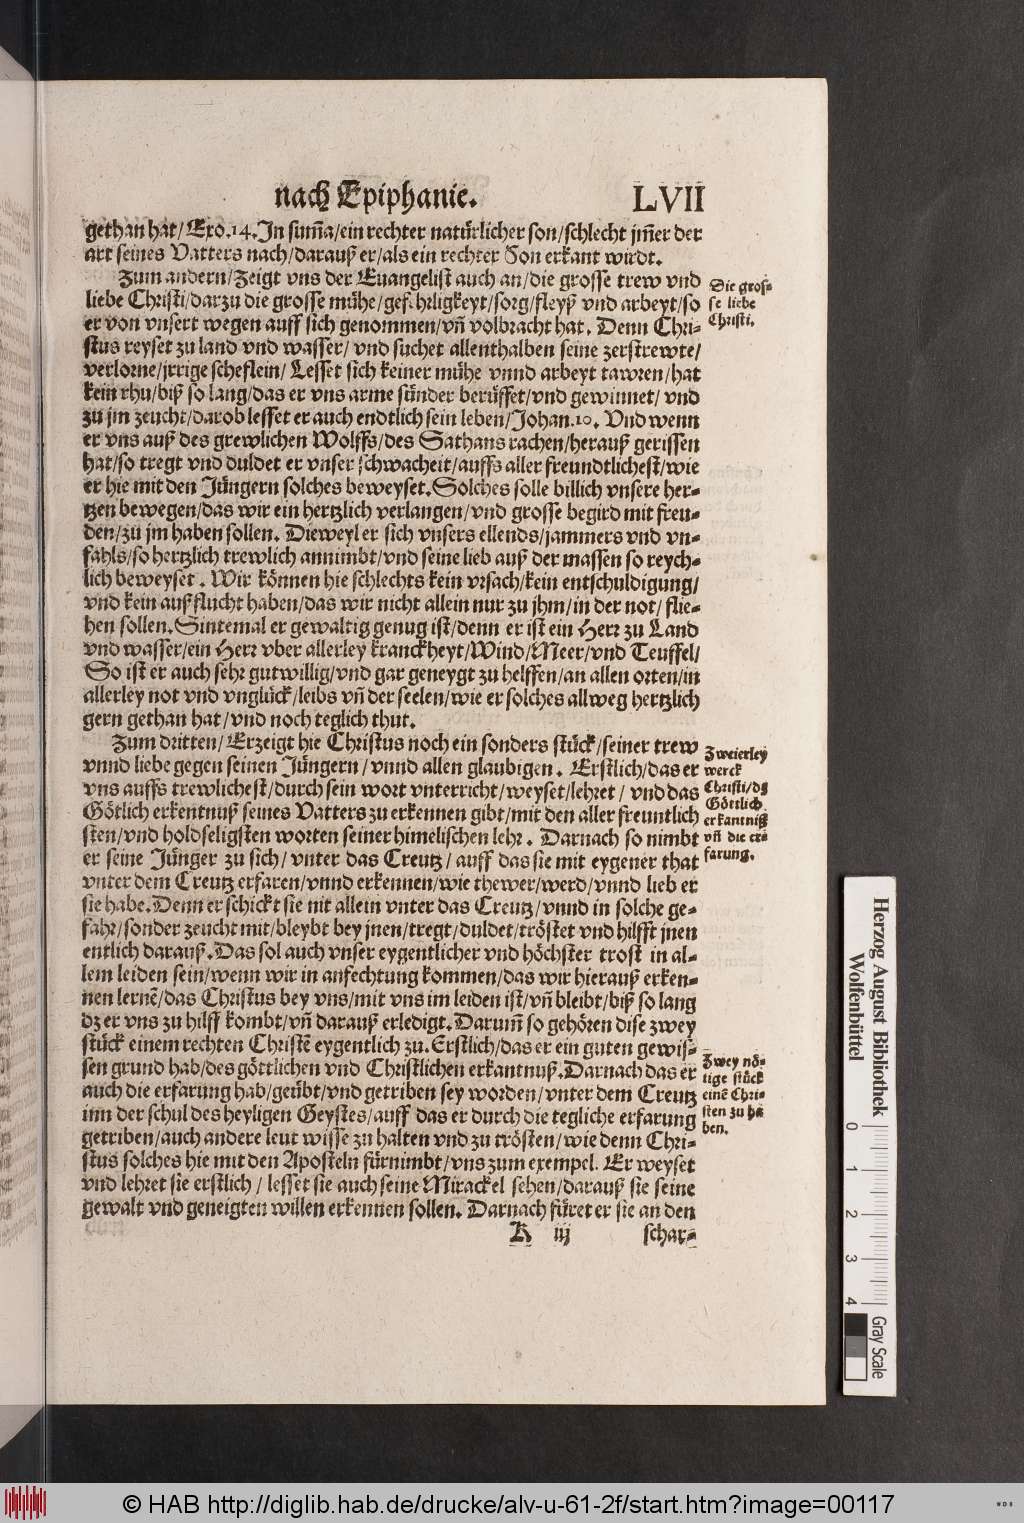 nach Epiphanie. LVII
gethan hat/ Exo.14. In sum̃a/ein rechter natürlicher son/schlecht jm̃er der
art seines Vatters nach/darauß er/als ein rechter Son erkant wirdt.
Zum andern/Zeigt vns der Euangelist auch an/die grosse trew vnd
liebe Christi/darzu die grosse mühe/gefehrligkeyt/sorg/fleyß vnd arbeyt/so
er von vnsert wegen auff sich genommen/vñ volbracht hat. Denn Chri-
stus reyset zu land vnd wasser/ vnd suchet allenthalben seine zerstrewte/
verlorne/jrrige scheflein/ Lesset sich keiner mühe vnnd arbeyt tawren/hat
kein rhu/biß so lang/das er vns arme sünder berüffet/vnd gewinnet/ vnd
zu jm zeucht/darob lesset er auch endtlich sein leben/Johan.10. Vnd wenn
er vns auß des grewlichen Wolffs/des Sathans rachen/herauß gerissen
hat/so tregt vnd duldet er vnser schwacheit/auffs aller freundtlichest/wie
er hie mit den Jüngern solches beweyset. Solches solle billich vnsere her-
tzen bewegen/das wir ein hertzlich verlangen/vnd grosse begird mit freu-
den/zu jm haben sollen. Dieweyl er sich vnsers ellends/jammers vnd vn-
fahls/so hertzlich trewlich annimbt/vnd seine lieb auß der massen so reych-
lich beweyset. Wir können hie schlechts kein vrsach/kein entschuldigung/
vnd kein außflucht haben/das wir nicht allein nur zu jhm/in der not/ flie-
hen sollen. Sintemal er gewaltig genug ist/denn er ist ein Herr zu Land
vnd wasser/ein Herr vber allerley kranckheyt/Wind/Meer/vnd Teuffel/
So ist er auch sehr gutwillig/vnd gar geneygt zu helffen/an allen orten/in
allerley not vnd vnglück/leibs vñ der seelen/wie er solches allweg hertzlich
gern gethan hat/vnd noch teglich thut.
Zum dritten/ Erzeigt hie Christus noch ein sonders stück/seiner trew
vnnd liebe gegen seinen Jüngern/vnnd allen glaubigen. Erstlich/das er
vns auffs trewlichest/durch sein wort vnterricht/weyset/lehret/ vnd das
Götlich erkentnuß seines Vatters zu erkennen gibt/mit den aller freuntlich
sten/vnd holdseligsten worten seiner himelischen lehr. Darnach so nimbt
er seine Jünger zu sich/ vnter das Creutz/ auff das sie mit eygener that
vnter dem Creutz erfaren/vnnd erkennen/wie thewer/werd/vnnd lieb er
sie habe. Denn er schickt sie nit allein vnter das Creutz/vnnd in solche ge-
fahr/sonder zeucht mit/bleybt bey jnen/tregt/duldet/tröstet vnd hilfft jnen
entlich darauß. Das sol auch vnser eygentlicher vnd höchster trost in al-
lem leiden sein/wenn wir in anfechtung kommen/das wir hierauß erken-
nen lernẽ/das Christus bey vns/mit vns im leiden ist/vñ bleibt/biß so lang
dz er vns zu hilff kombt/vñ darauß erledigt. Darum̃ so gehören dise zwey
stück einem rechten Christẽ eygentlich zu. Erstlich/das er ein guten gewis-
sen grund hab/des göttlichen vnd Christlichen erkantnuß. Darnach das er
auch die erfarung hab/geübt/vnd getriben sey worden/vnter dem Creutz
inn der schul des heyligen Geystes/auff das er durch die tegliche erfarung
getriben/auch andere leut wisse zu halten vnd zu trösten/wie denn Chri-
stus solches hie mit den Aposteln fürnimbt/vns zum exempel. Er weyset
vnd lehret sie erstlich/ lesset sie auch seine Mirackel sehen/darauß sie seine
gewalt vnd geneigten willen erkennen sollen. Darnach füret er sie an den
K iij schar-
Die gros-
se liebe
Christi.
Zweierley
werck
Christi/dz
Göttlich
erkantniß
vñ die er-
farung.
Zwey nö-
tige stück
einẽ Chri-
sten zu ha
ben.
Herzog August Bibliothek
Wolfenbüttel
0 1 2 3 4
Gray Scale
© HAB http://diglib.hab.de/drucke/alv-u-61-2f/start.htm?image=00117